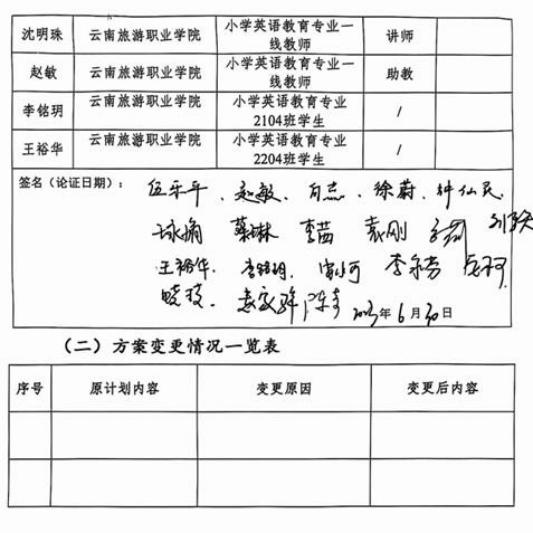 沈明珠 云南旅游职业学院 小学英语教育专业一 讲师
线教师
赵敏 云南旅游职业学院 小学英语教育专业一 助教
线教师
李铭玥 云南旅游职业学院 小学英语教育专业 /
2104班学生
王裕华 云南旅游职业学院 小学英语教育专业 /
2204班学生
签名（论证日期）： 伍乐平、赵敏、徐蔚、钟仙民
蔡琳 李茜 袁刚
王裕华、李铭玥、
陈
2023年6月30日
（二）方案变更情况一览表
序号 原计划内容 变更原因 变更后内容